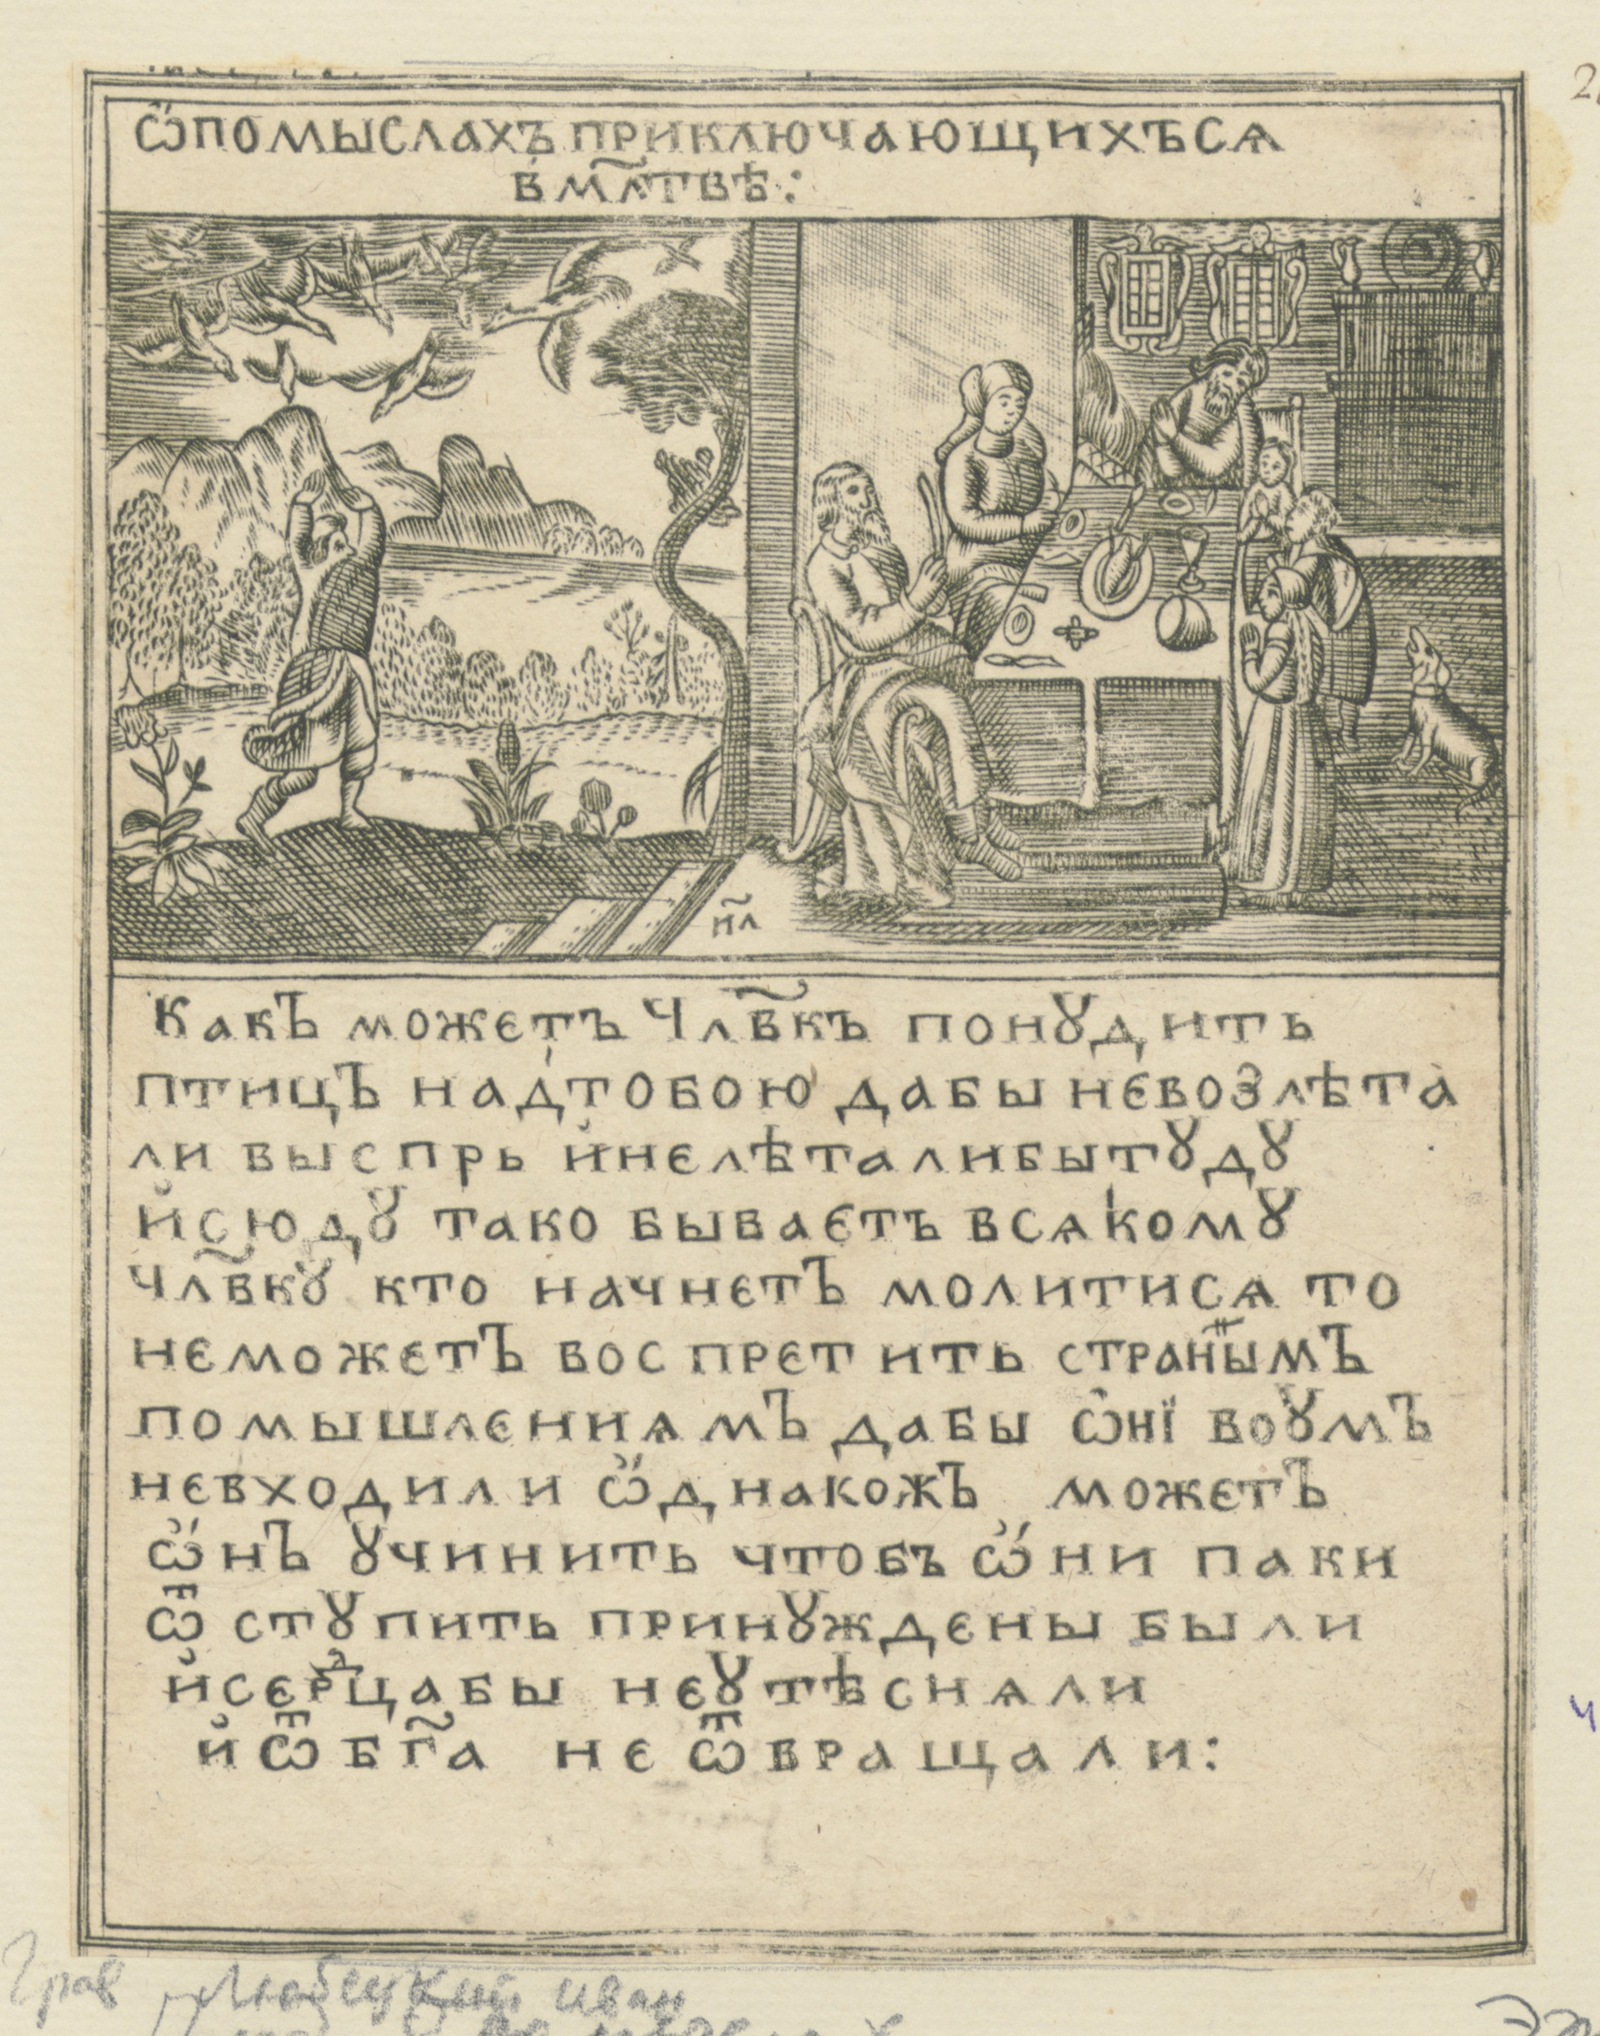 Ѽпомыслахъ приключающихъсѧ
в мл҃твѣ:
ил҃
Какъ можетъ члв҃къ понꙋдить
птицъ над тобою дабы невозлѣта
ли выспрь инелѣталибытꙋдꙋ
исюдꙋ тако бываетъ всѧкомꙋ
члв҃кꙋ кто начнетъ молитисѧ то
неможетъ воспретить странⷩымъ
помышлениѧмъ дабы ѡнї воꙋмъ
невходили ѡднакожъ можетъ
ѡнъ ꙋчинить чтобъ ѡни паки
ѿ стꙋпить принꙋждены были
исерⷣцабы неꙋтѣснѧли
и ѿ бг҃а не ѿвращали:
Грав Любецкий Иван